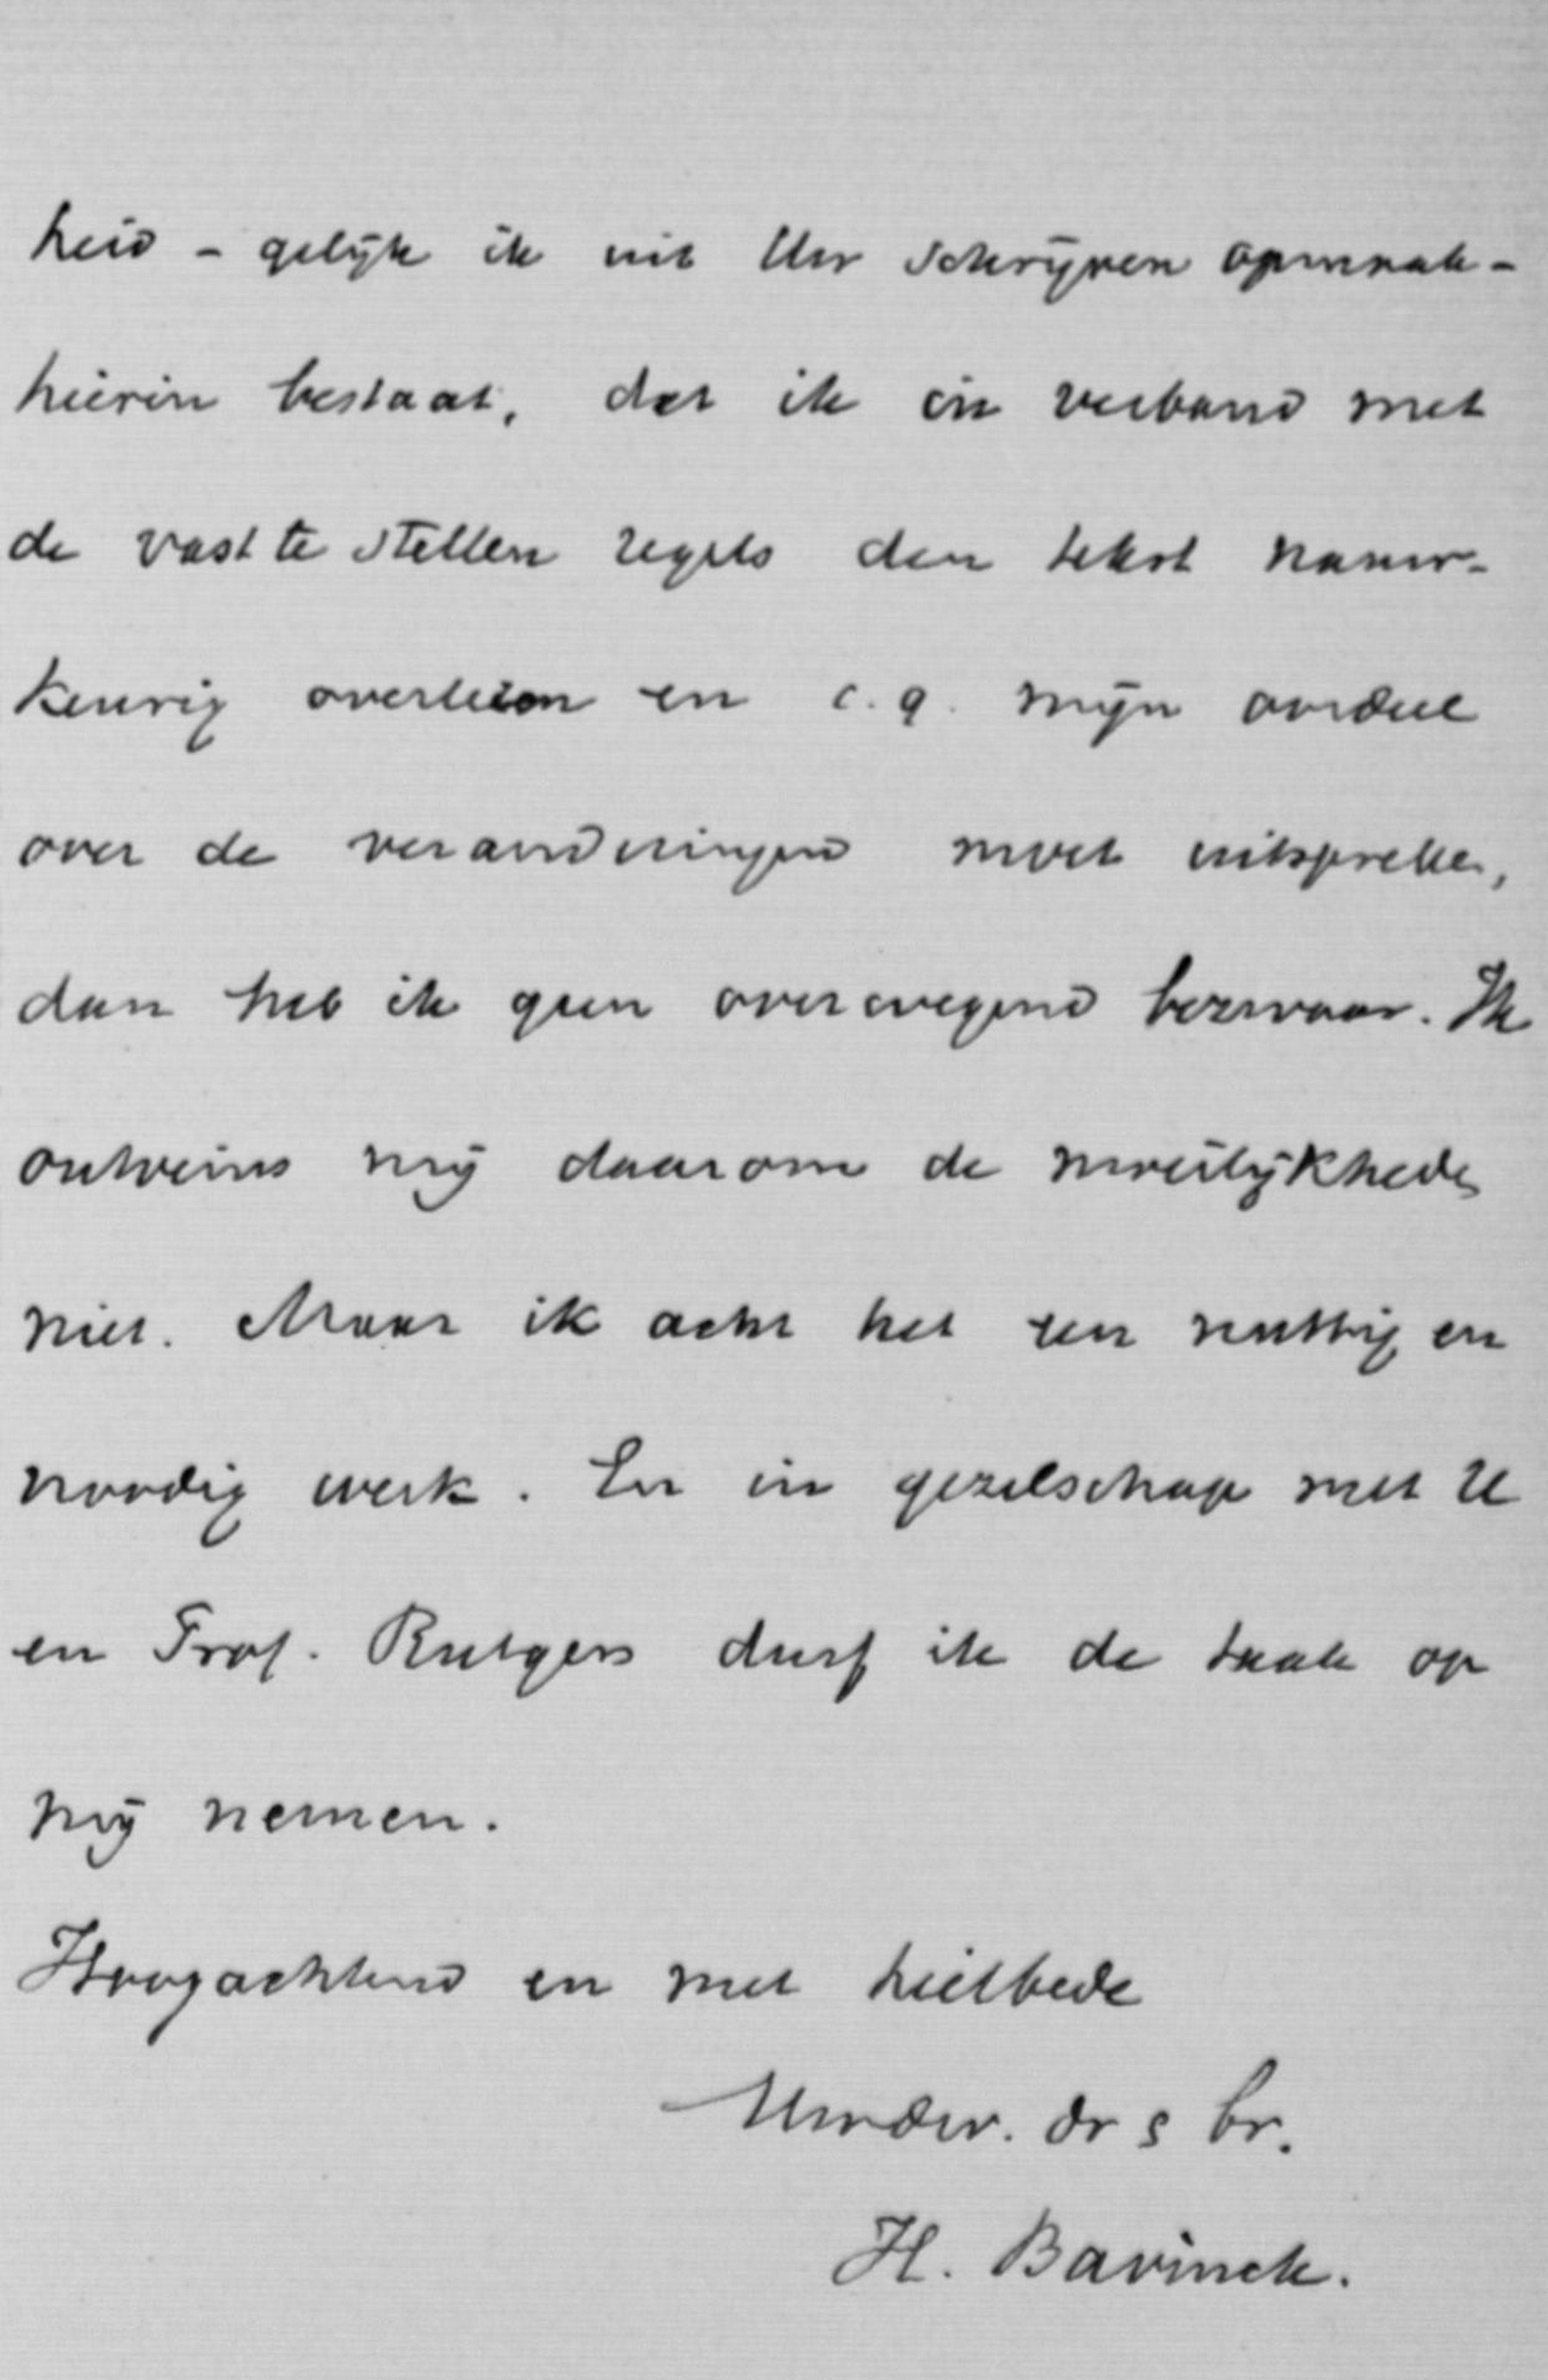 heid - gelijk ik uit Uw schrijven opmaak -
hierin bestaat, dat ik in verband met
de vast te stellen regels den tekst nauw-
keurig overlezen en c.q. mijn oordeel
over de veranderingen moet uitspreken,
dan heb ik geen overwegend bezwaar. Ik
ontveins mij daarom de moeilijkheden
niet. Maar ik acht het een nuttig en
noodig werk. En in gezelschap met U
en Prof. Rutgers durf ik de taak op
mij nemen.
Hoogachtend en met heilbede
Uwdw. dr & br.
H. Bavinck.